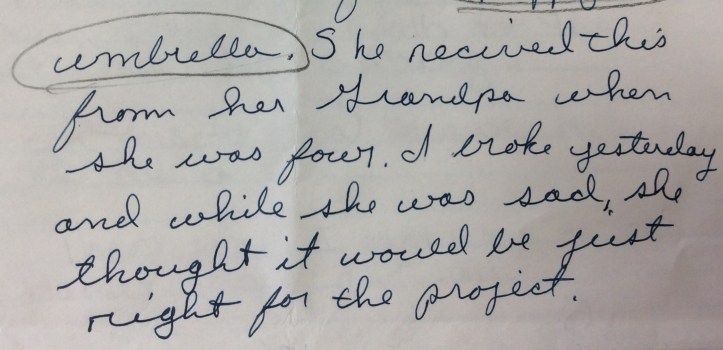 umbrella. She recived this
from her Grandpa when
she was four. I broke yesterday
and while she was sad, she
thought it would be just
right for the project.